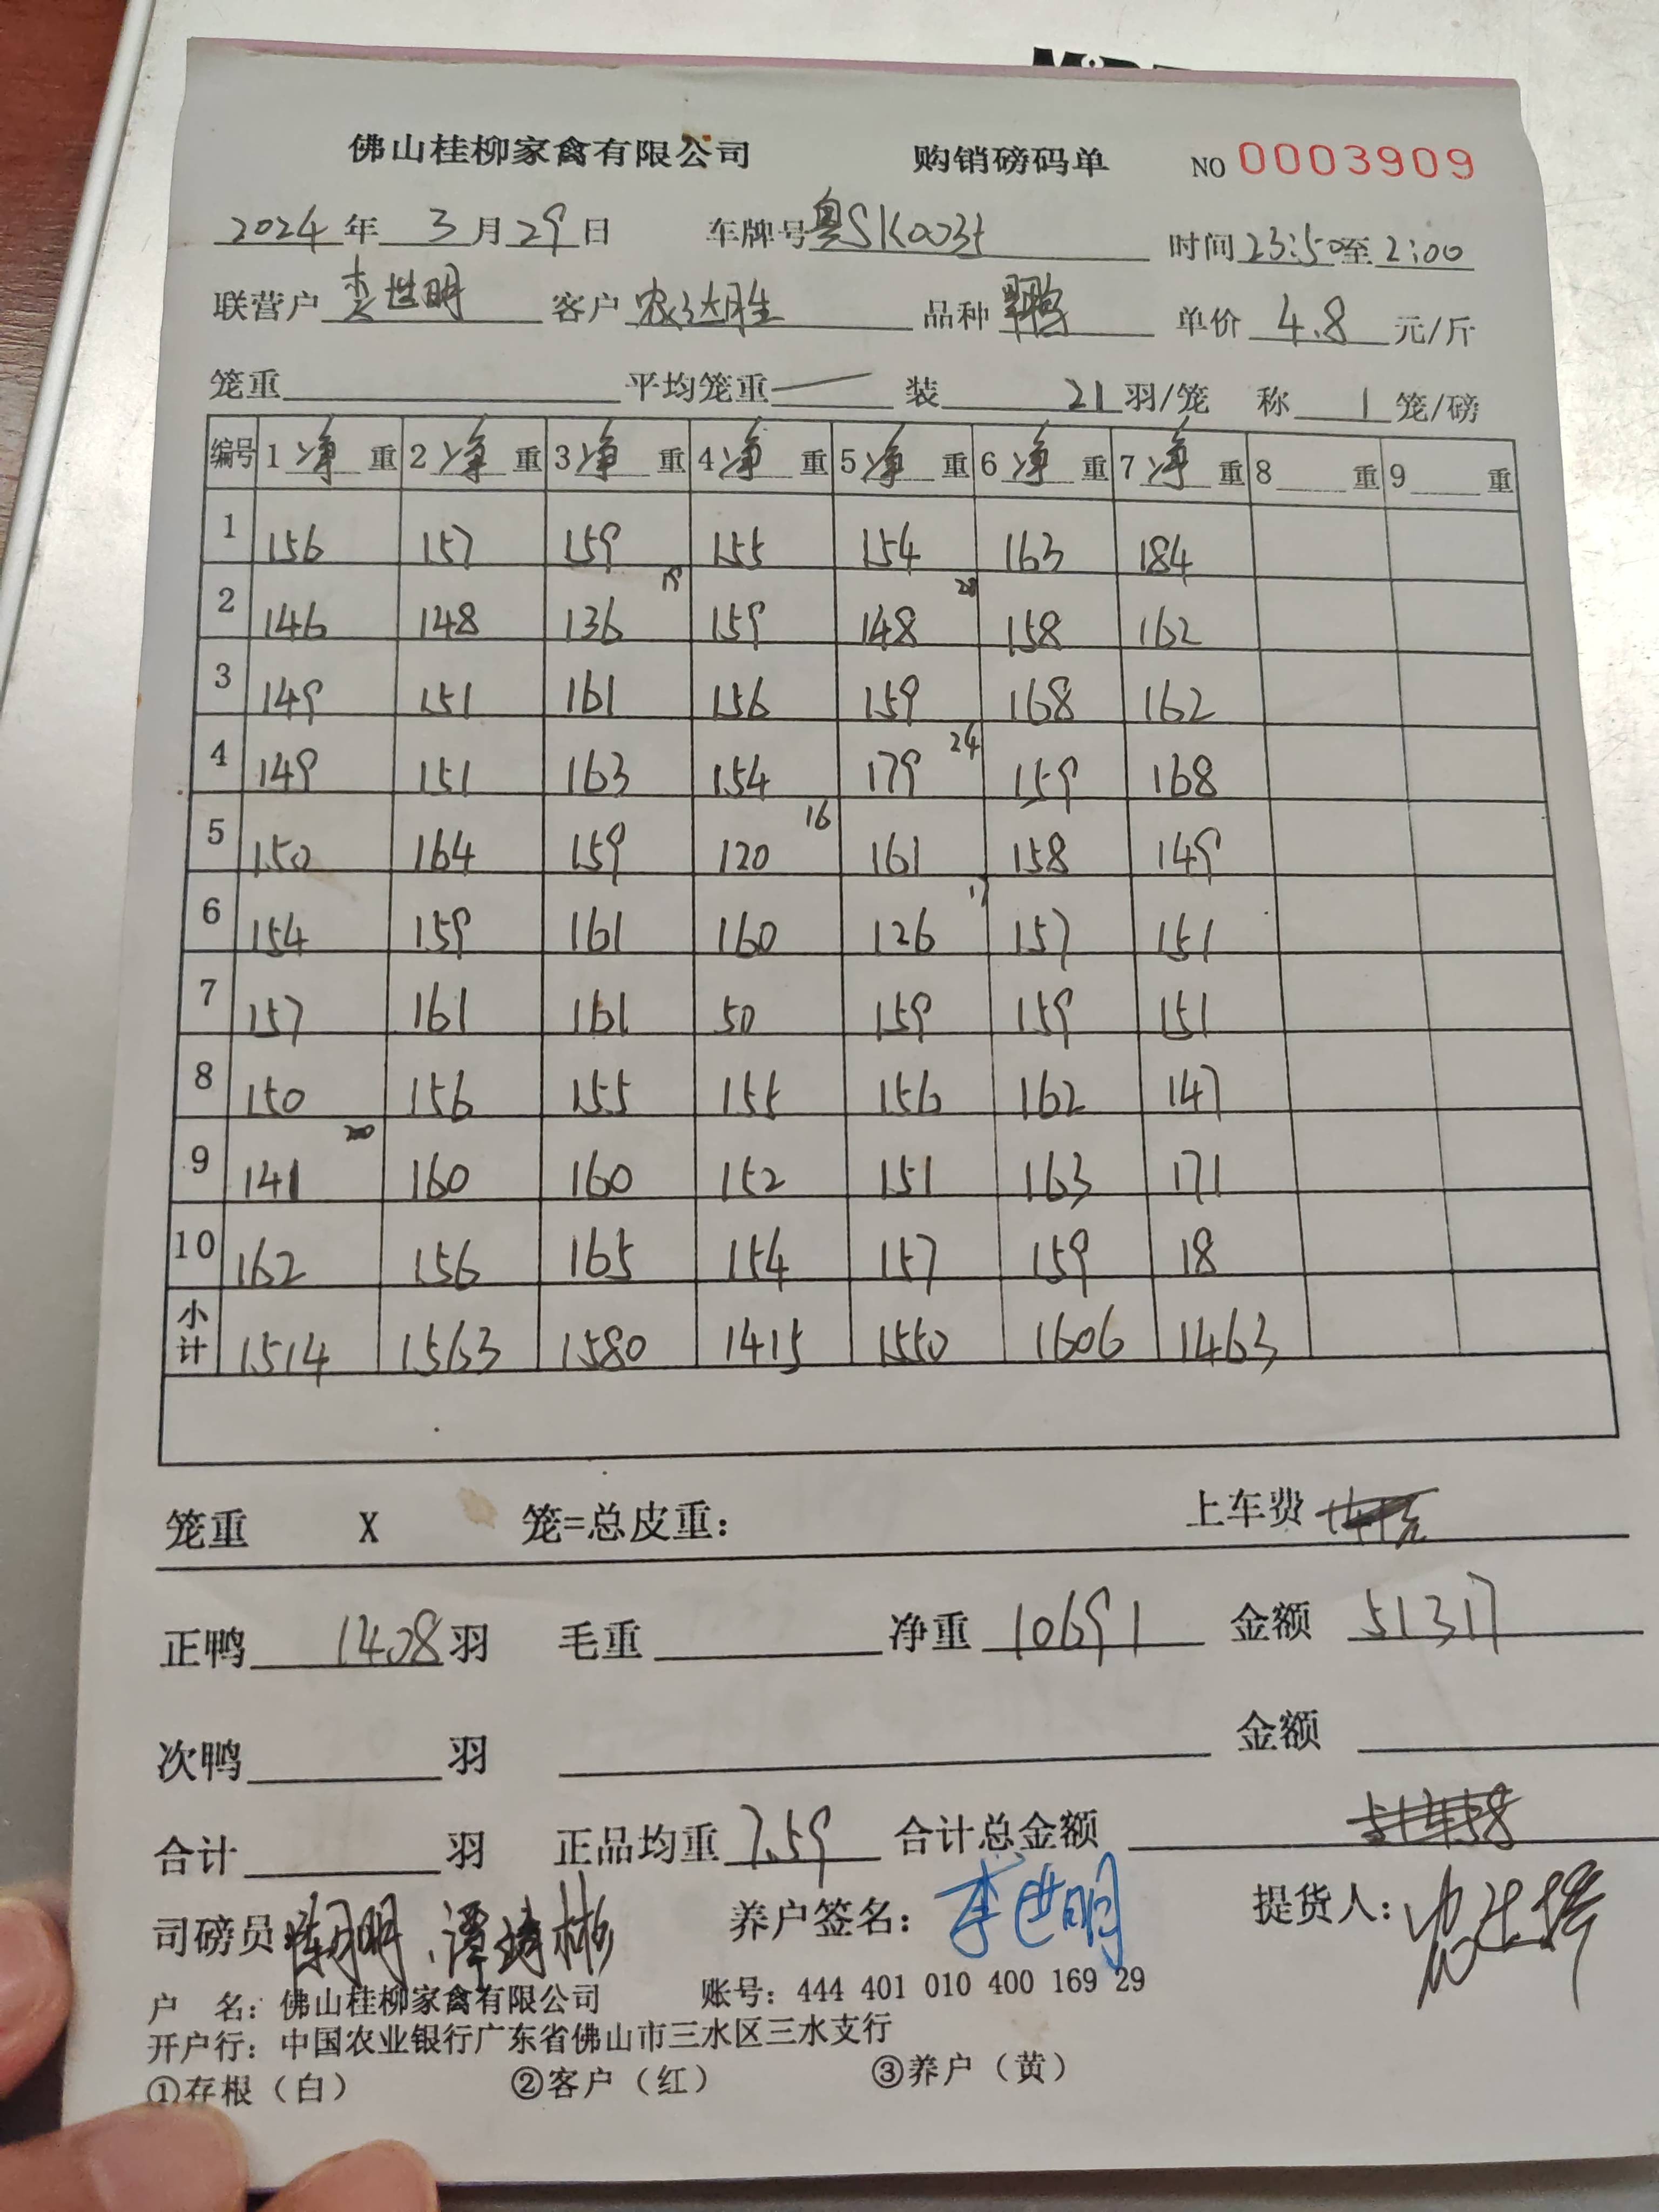 佛山桂柳家禽有限公司 购销磅码单 NO 0003909
2024 年 3 月 29 日 车牌号 粤SK 时间 23:50 至 2:00
联营户 李世明 客户 农达胜 品种 单价 4.8 元/斤
笼重 平均笼重 — 装 21 羽/笼 称 1 笼/磅
编号 1 净 重 2 净 重 3 净 重 4 净 重 5 净 重 6 净 重 7 净 重 8 重 9 重
1 156 157 159 155 154 163 184
2 146 148 136 19 159 148 20 158 162
3 149 151 161 156 159 168 162
4 149 151 163 154 179 24 159 168
5 150 164 159 120 16 161 158 149
6 154 159 161 160 126 17 157 151
7 157 161 161 50 159 159 151
8 150 156 155 155 156 162 147
9 141 160 160 152 151 163 171
10 162 156 165 154 157 159 18
小计 1514 1563 1580 1415 1550 1606 1463
笼重 X 笼=总皮重: 上车费
正鸭 1408 羽 毛重 净重 10691 金额 51317
次鸭 羽 金额
合计 羽 正品均重 7.59 合计总金额
司磅员 养户签名: 李世明 提货人:
户 名: 佛山桂柳家禽有限公司 账号: 444 401 010 400 169 29
开户行: 中国农业银行广东省佛山市三水区三水支行
①存根（白） ②客户（红） ③养户（黄）